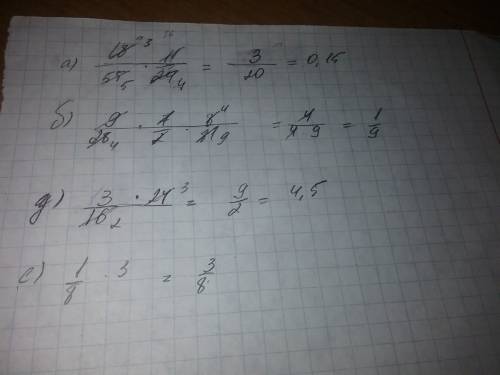 а) 18³/55₅ · 11/24₄ = 3/20 = 0,15
б) 9/28₄ · 7/2 · 8⁴/81₉ = 4/4 9 = 1/9
д) 3/16₂ · 24³ = 9/2 = 4,5
е) 1/8 · 3 = 3/8